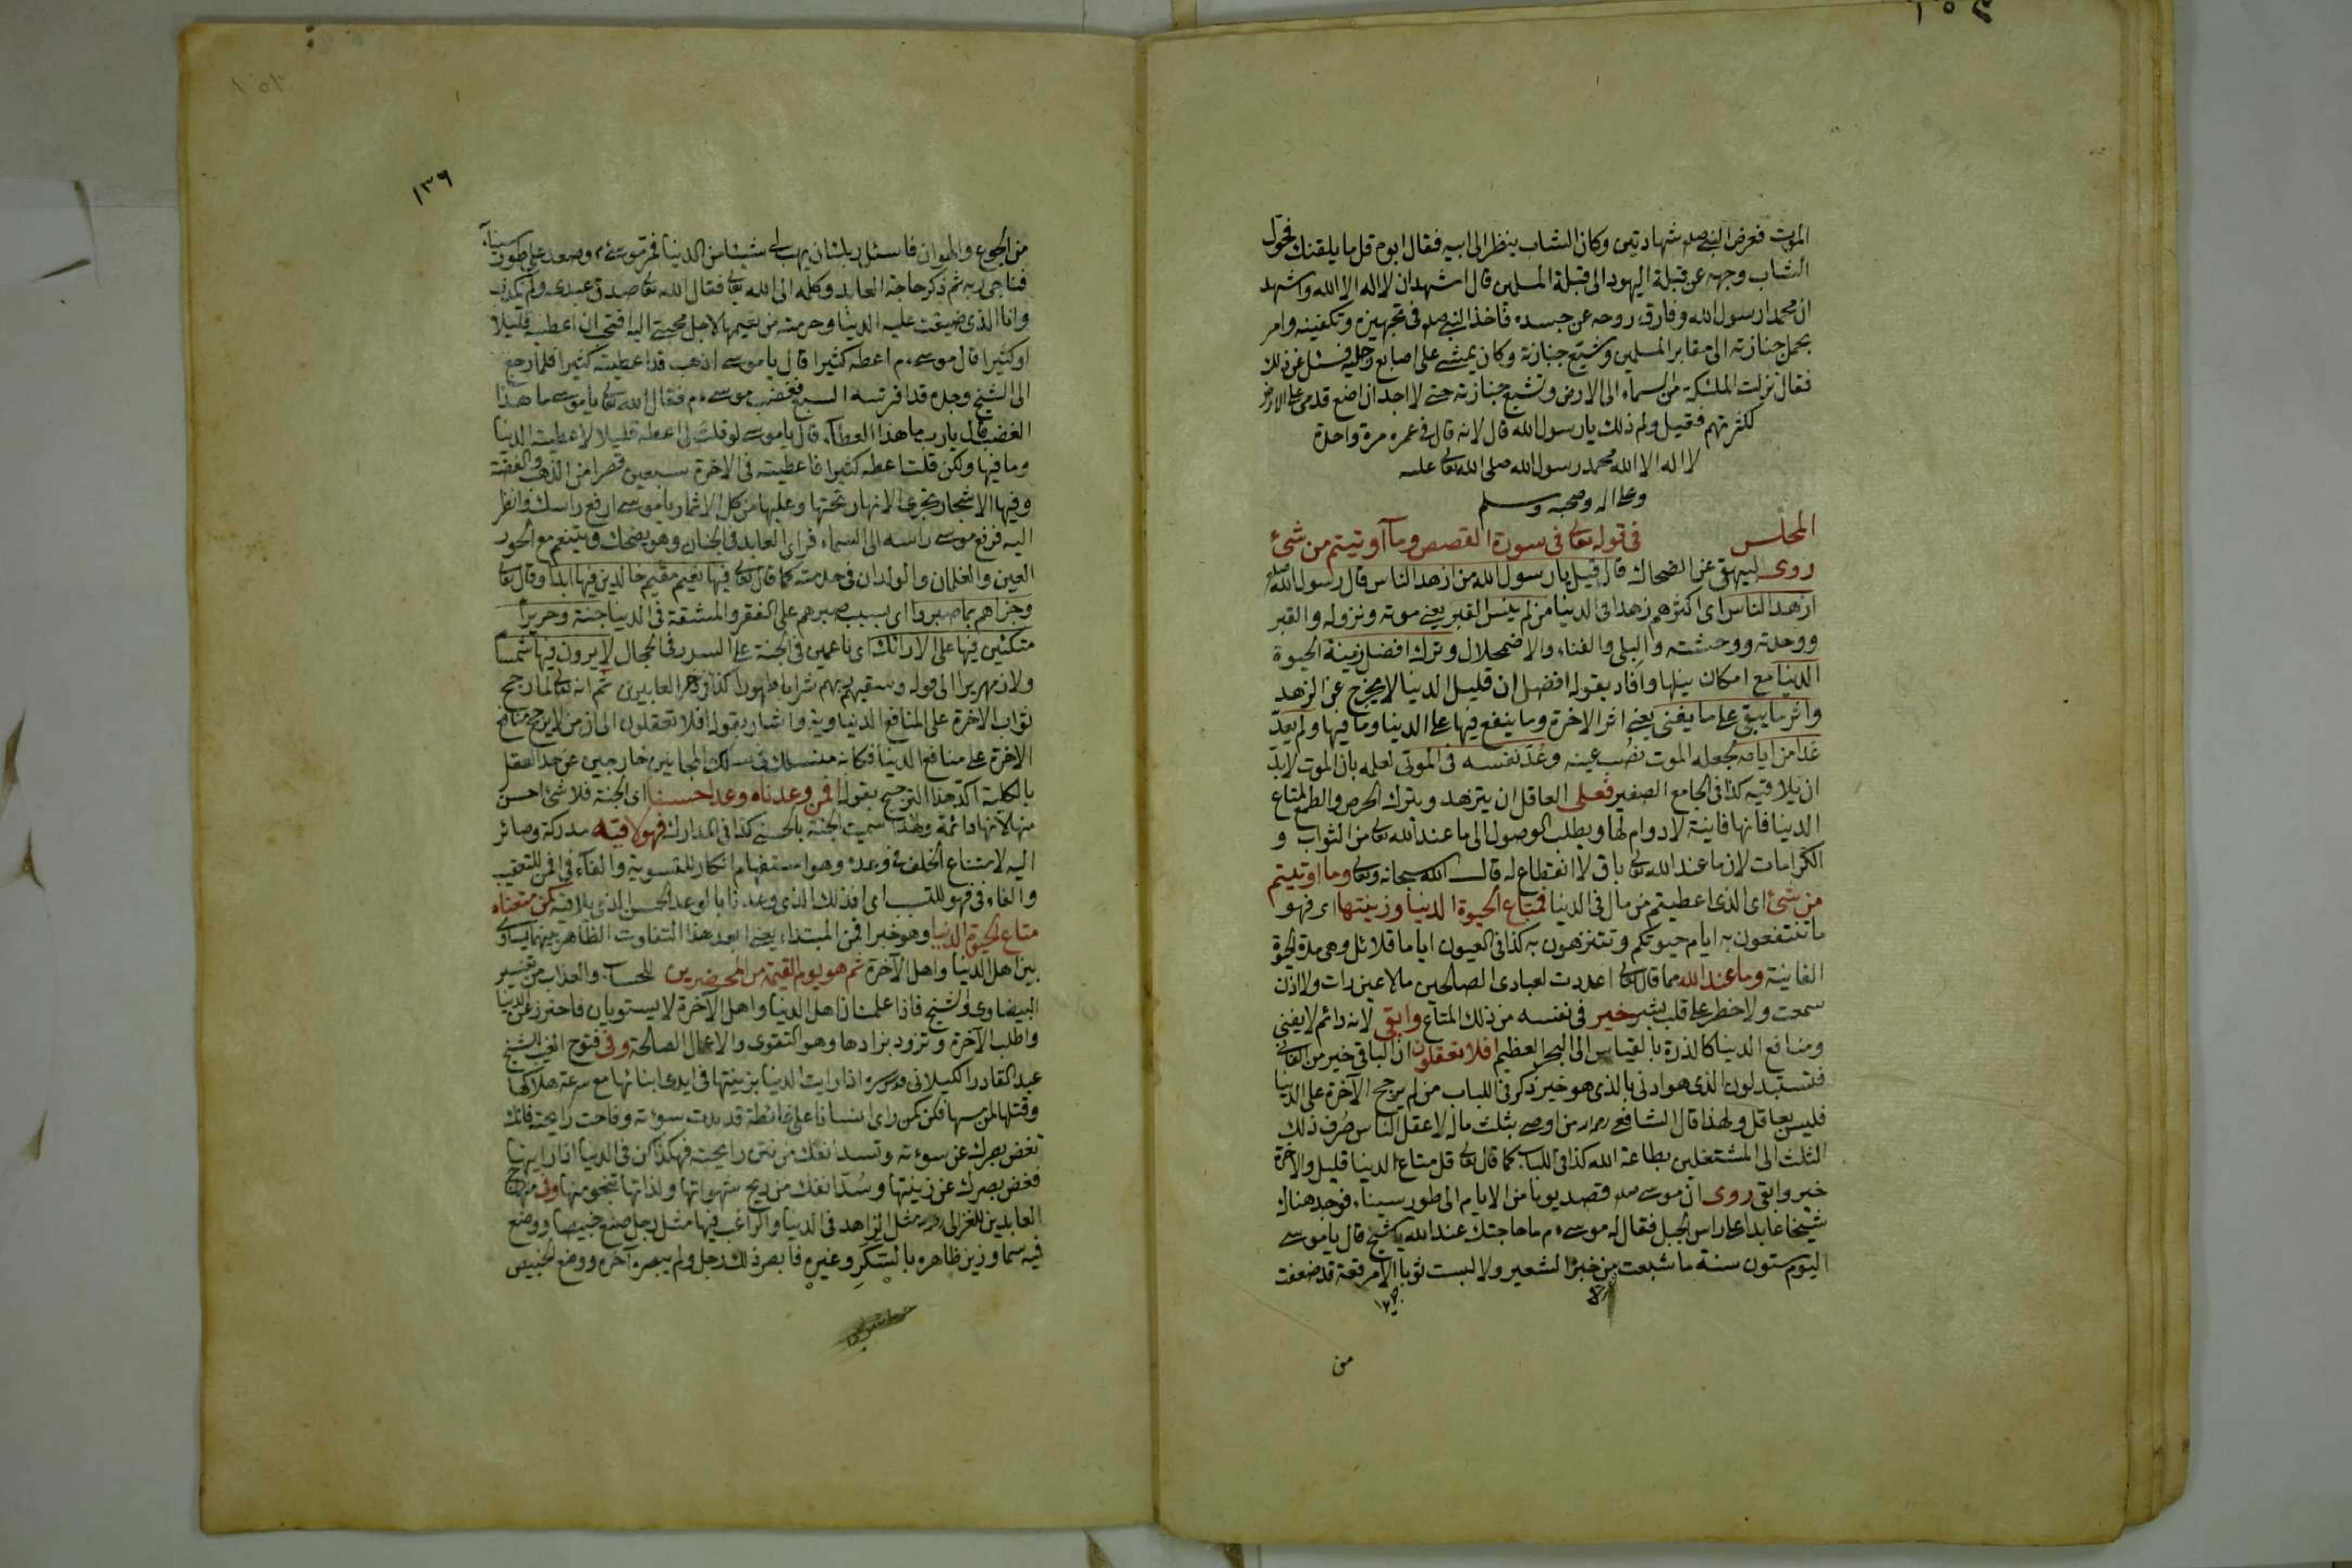 الموت فعرض النبي صلم شهادتين وكان الشاب ينظر الى ابيه فقال ابوه قل ما يلقنك فحول
الشاب وجهه عن قبلة اليهود الى قبلة المسلمين قال اشهد ان لا اله الا الله واشهد
ان محمدا رسول الله وفارق روحه عن جسده فاخذ النبي صلم في تجهيزه وتكفينه وامر
بحمل جنازته الى مقابر المسلمين وشيع جنازته وكان يمشي على اصابع رجليه فسئل عن ذلك
فقال نزلت الملئكة من السماء الى الارض وتشيع جنازته حتى لا اجد ان اضع قدمي على الارض
لكثرتهم فقيل ولم ذلك يا رسول الله قال لانه قال في عمره مرة واحدة
لا اله الا الله محمد رسول الله صلى الله تعالى عليه
وعلى اله وصحبه وسلم
المجلس في قوله تعالى في سورة القصص وما اوتيتم من شئ
روى البيهقي عن الضحاك قال قيل يا رسول الله من ازهد الناس قال رسول الله صلعم
ازهد الناس اي اكثرهم زهدا في الدنيا من لم ينس القبر يعني موته ونزوله والقبر
ووحدته ووحشته والبلى والفناء والاضمحلال وترك افضل زينة الحيوة
الدنيا مع امكان نيلها وافاد بقوله افضل ان قليل الدنيا لا يخرج عن الزهد
واثر ما يبقى على ما يفنى يعني اثر الاخرة وما ينفع فيها على الدنيا وما فيها ولم يعد
غدا من ايامه لجعله الموت نصب عينه وعد نفسه في الموتى لعلمه بان الموت لا بد
ان يلاقيه كذا في الجامع الصغير فعلى العاقل ان يتزهد ويترك الحرص والطمع لمتاع
الدنيا فانها فانية لا دوام لها ويطلب الوصول الى ما عند الله تعالى من الثواب و
الكرامات لان ما عند الله تعالى باق لا انقطاع له قال الله سبحانه وتعالى وما اوتيتم
من شئ اي الذي اعطيتم من مال في الدنيا فمتاع الحيوة الدنيا وزينتها اي فهو
ما تنتفعون به ايام حيوتكم وتتنزهون به كذا في العيون اياما قلائل وهي مدة الحيوة
الفانية وما عند الله مما قال تعالى اعددت لعبادي الصالحين ما لا عين رات ولا اذن
سمعت ولا خطر على قلب بشر خير في نفسه من ذلك المتاع وابقى لانه دائم لا يفنى
ومنافع الدنيا كالذرة بالقياس الى البحر العظيم افلا تعقلون ان الباقي خير من الفاني
فتستبدلون الذي هو ادنى بالذي هو خير ذكر في اللباب من لم يرجح الآخرة على الدنيا
فليس بعاقل ولهذا قال الشافعي رحمه الله من اوصى بثلث ماله لاعقل الناس صرف ذلك
الثلث الى المشتغلين بطاعة الله كذا في اللباب كما قال تعالى قل متاع الدنيا قليل والآخرة
خير وابقى روى ان موسى صلم قصد يوما من الايام الى طور سيناء فوجد هناك
شيخا عابدا على راس الجبل فقال له موسى ءم ما حاجتك عند الله يا شيخ قال يا موسى
اليوم ستون سنة ما شبعت من خبز الشعير ولا لبست ثوبا الا مرقعة قد ضعفت
من
١٣٦
من الجوع والهوان فاسئل ربك ان يهب لي شيئا من الدنيا فمر موسى ءم وصعد على طور سيناء
فناجى ربه ثم ذكر حاجة العابد وكله الى الله تعالى فقال الله تعالى صدق عبدي ولم يكذب
وانا الذي ضيقت عليه الدنيا وحرمته من نعيمها لاجل محبتي اليه افتحب ان اعطيه قليلا
او كثيرا قال موسى ءم اعطه كثيرا قال يا موسى اذهب قد اعطيته كثيرا فلما رجع
الى الشيخ وجده قد افرسه السبع فغضب موسى ءم فقال الله تعالى يا موسى ما هذا
الغضب قال يا رب ما هذا العطاء قال يا موسى لو قلت لي اعطه قليلا لاعطيته الدنيا
وما فيها ولكن قلت اعطه كثيرا فاعطيته في الاخرة سبعين قصرا من الذهب والفضة
وفيها الاشجار تجري الانهار تحتها وعليها من كل الاثمار يا موسى ارفع راسك وانظر
اليه فرفع موسى راسه الى السماء فراى العابد في الجنان وهو يضحك ويتنعم مع الحور
العين والغلمان والولدان في خدمته كما قال تعالى فيها نعيم مقيم خالدين فيها ابدا وقال تعالى
وجزاهم بما صبروا اي بسبب صبرهم على الفقر والمشقة في الدنيا جنة وحريرا
متكئين فيها على الارائك اي ناعمين في الجنة على السرر في الحجال لا يرون فيها شمسا
ولا زمهريرا الى قوله وسقيهم ربهم شرابا طهورا كذا في العابدين ثم انه تعالى لما رجح
ثواب الاخرة على المنافع الدنياوية واشار بقوله افلا تعقلون الى ان من لا يرجح منافع
الاخرة على منافع الدنيا فكانه منسلك في سلك المجانين خارجين عن حد العقل
بالكلية اكد هذا الترجيح بقوله افمن وعدناه وعدا حسنا اي الجنة فلا شئ احسن
منها لانها دائمة ولهذا سميت الجنة بالحسنى كذا في المدارك فهو لاقيه مدركه وصائر
اليه لامتناع الخلف في وعده وهو استفهام انكار للتسوية والفاء في افمن للتعقيب
والفاء في فهو للسبب اي افذلك الذي وعدناه الوعد الحسن الذي يلاقيه كمن متعناه
متاع الحيوة الدنيا وهو خبر افمن المبتداء يعني ابعد هذا التفاوت الظاهر بينهما يساوى
بين اهل الدنيا واهل الآخرة ثم هو يوم القيمة من المحضرين للحساب والعذاب من تفسير
البيضاوي والشيخ فاذا علمت ان اهل الدنيا واهل الآخرة لا يستويان فاحترز عن الدنيا
واطلب الآخرة وتزود بزادها وهو التقوى والاعمال الصالحة وفي فتوح الغيب للشيخ
عبد القادر الكيلاني قدس سره اذا رايت الدنيا بزينتها في ايدي ابنائها مع سرعة هلاكها
وقتلها لمن مسها فكن كمن راى انسانا على غائطة قد بدت سوءته وفاحت رايحته فانك
تغض بصرك عن سوءته وتسد انفك من نتن رايحته فهكذا كن في الدنيا اذا رايتها
فغض بصرك عن زينتها وسد انفك من ريح شهواتها ولذاتها تنجو منها وفي منهاج
العابدين للغزالي رحمه مثل الزاهد في الدنيا والراغب فيها مثل رجل صنع خبيصا ووضع
فيه سما وزين ظاهره بالسكر وغيره فابصر ذلك رجل ولم يبصره آخر ووضع الخبيص